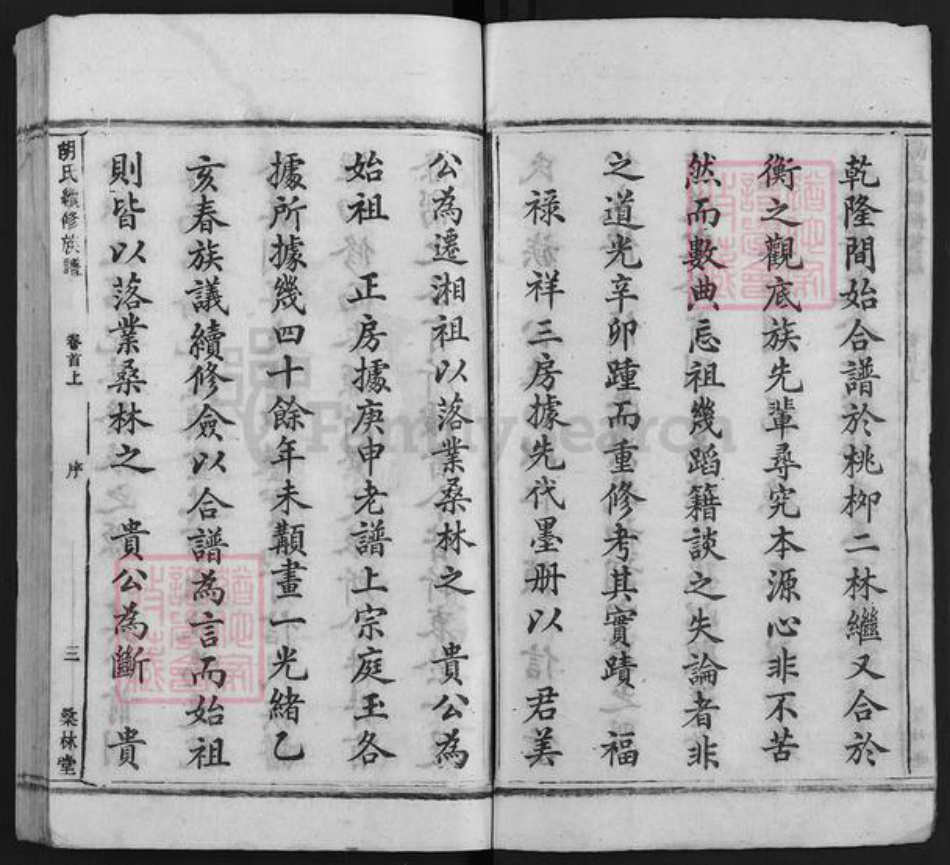 乾隆間始合譜於桃柳二林繼又合於
衡之觀底族先輩尋究本源心非不苦
然而數典忘祖幾蹈籍談之失論者非
之道光辛卯踵而重修考其實蹟 福
祿 祥三房據先代墨册以 君美
公為遷湘祖以落業桑林之 貴公為
始祖 正房據庚申老譜上宗庭玉各
據所據幾四十餘年未顜畫一光緒乙
亥春族議續修僉以合譜為言而始祖
則皆以落業桑林之 貴公為斷 貴
胡氏續修族譜 卷首上 序 三 桑林堂
FamilySearch